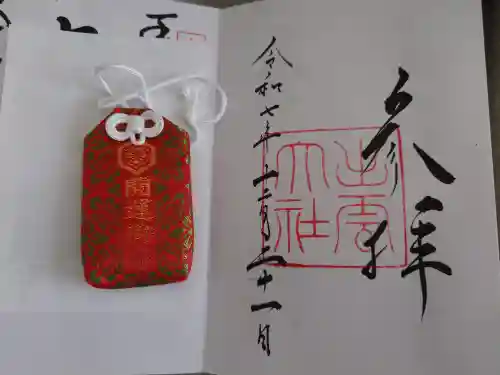 参拝
出雲
大社
令和七年十二月三十一日
開運御守